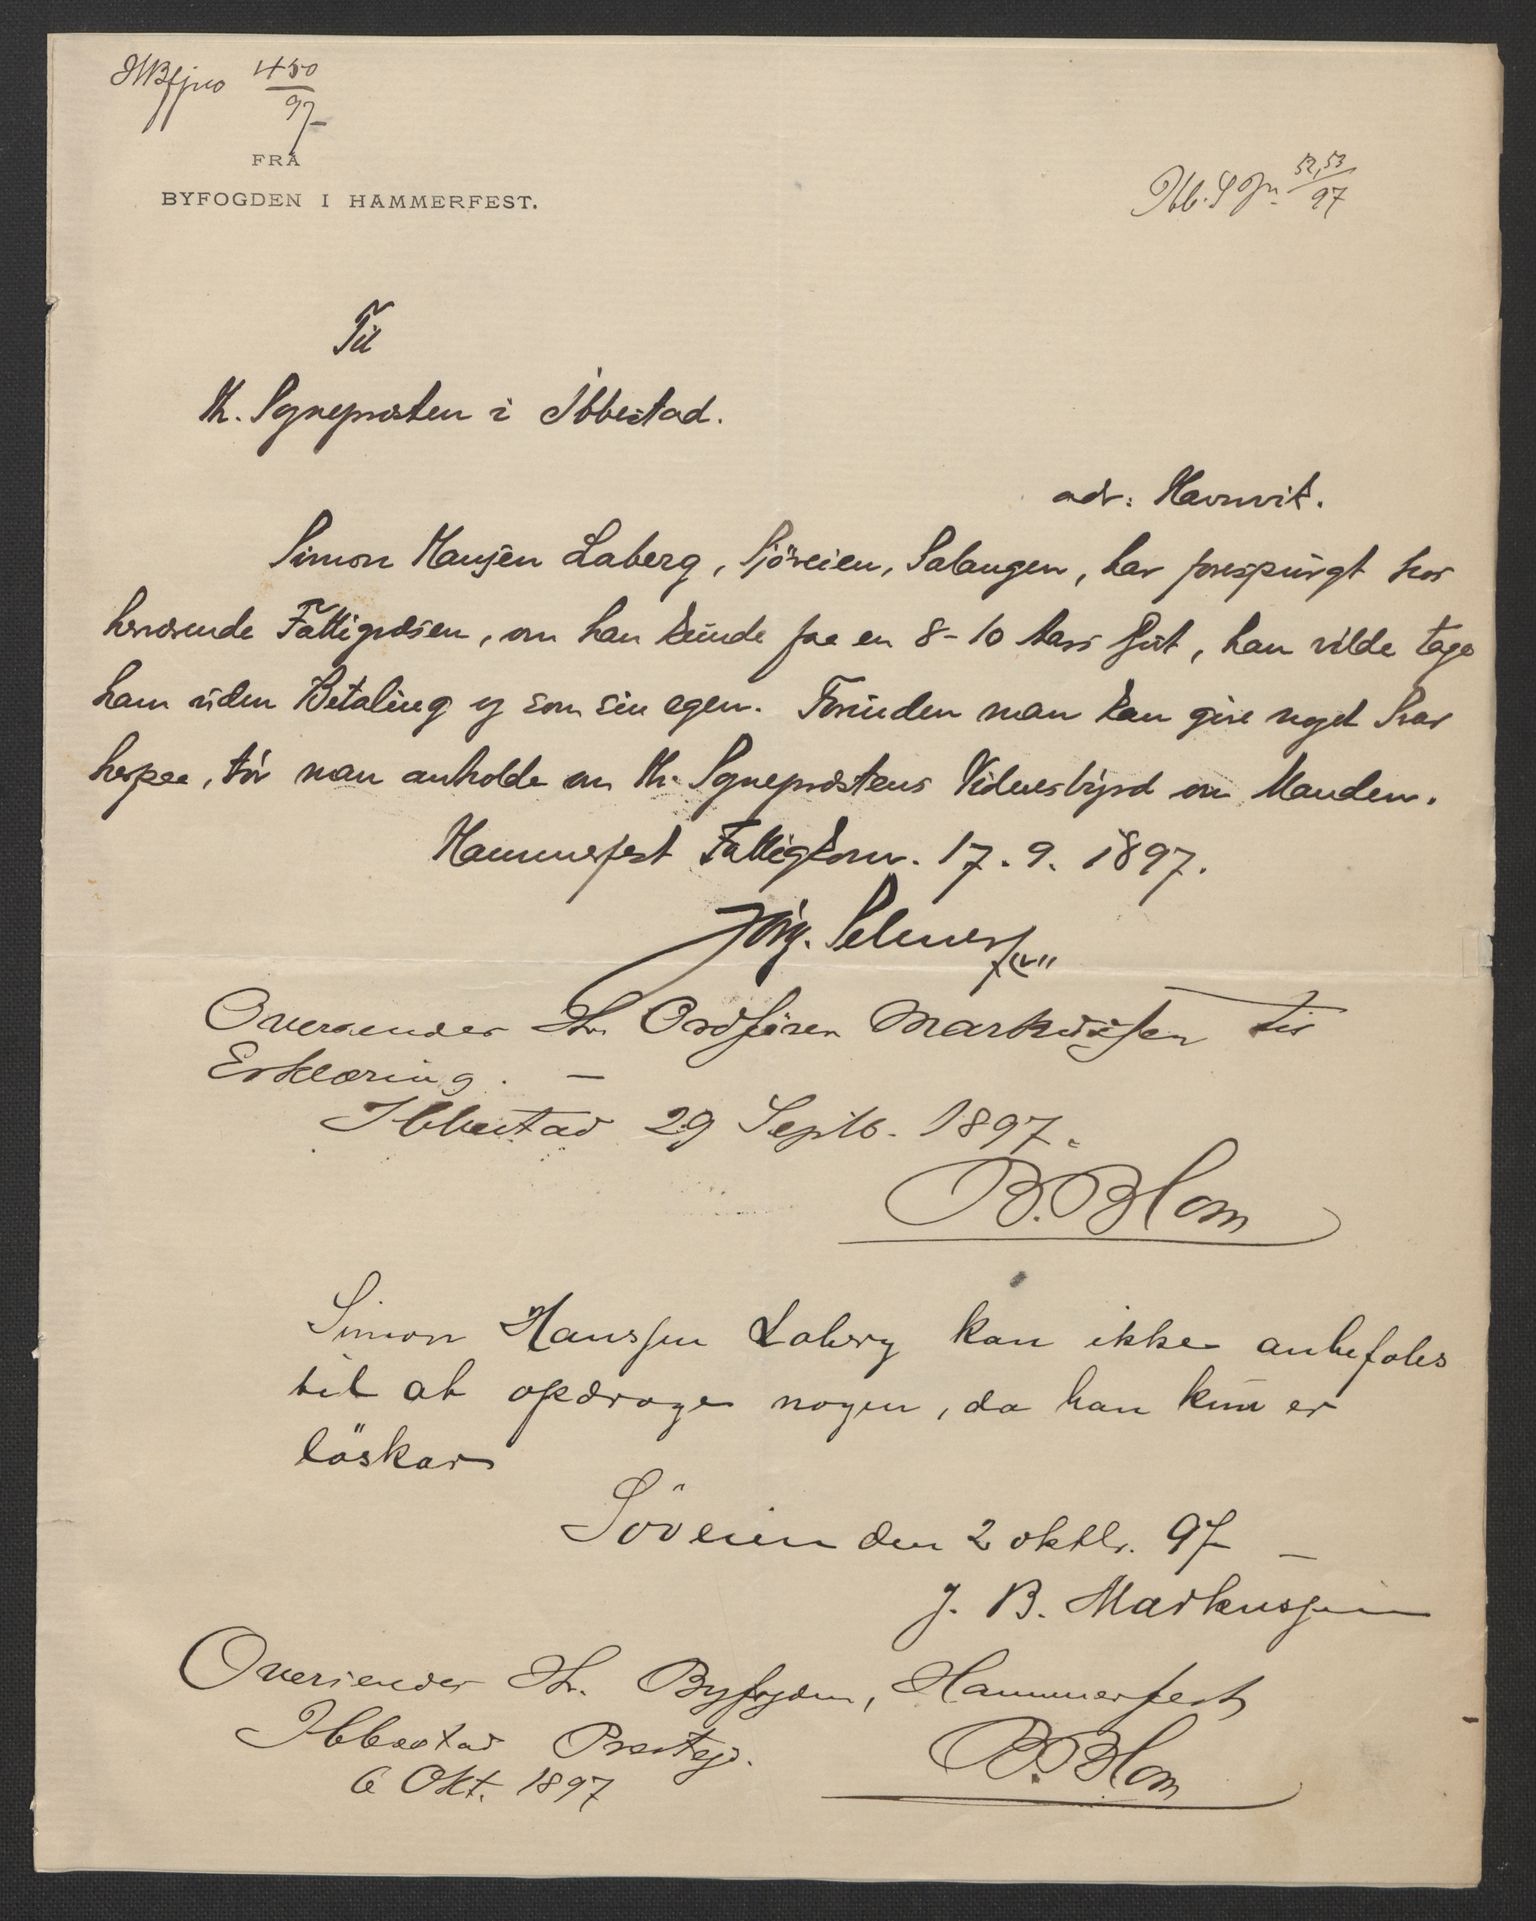 450
97
FRA
BYFOGDEN I HAMMERFEST.
52,53
97
Til
Hr. Sognepræsten i Ibbestad.
adr: Havnvik.
Simon Hansen Laberg, Sjöveien, Salangen, har forespurgt hos
herværende Fattigvæsen, om han kunde faa en 8-10 aars Gut, han vilde tage
ham uden Betaling og som sin egen. Forinden man kan give noget Svar
herpaa, tör man anholde om Hr. Sognepræstens Vidnesbyrd om Manden.
Hammerfest Fattigkom. 17. 9. 1897.
Jörg. Selmer
Oversendes Hr. Ordförer Markussen til
Erklæring. —
Ibbestad 29 Septb. 1897.
B. Blom
Simon Hanssen Laberg kan ikke anbefales
til at opdrage nogen, da han kun er
löskar
Söveien den 2 oktbr. 97 —
J. B. Markussen
Oversendes Hr. Byfogden, Hammerfest
Ibbestad Prestgj.
6 Okt. 1897
B. Blom